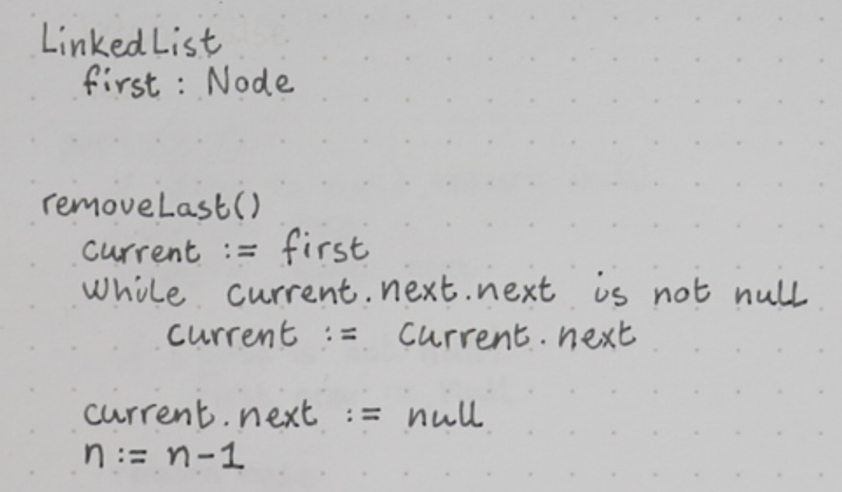 LinkedList
first : Node
removeLast()
current := first
while current.next.next is not null
current := current.next
current.next := null
n := n-1